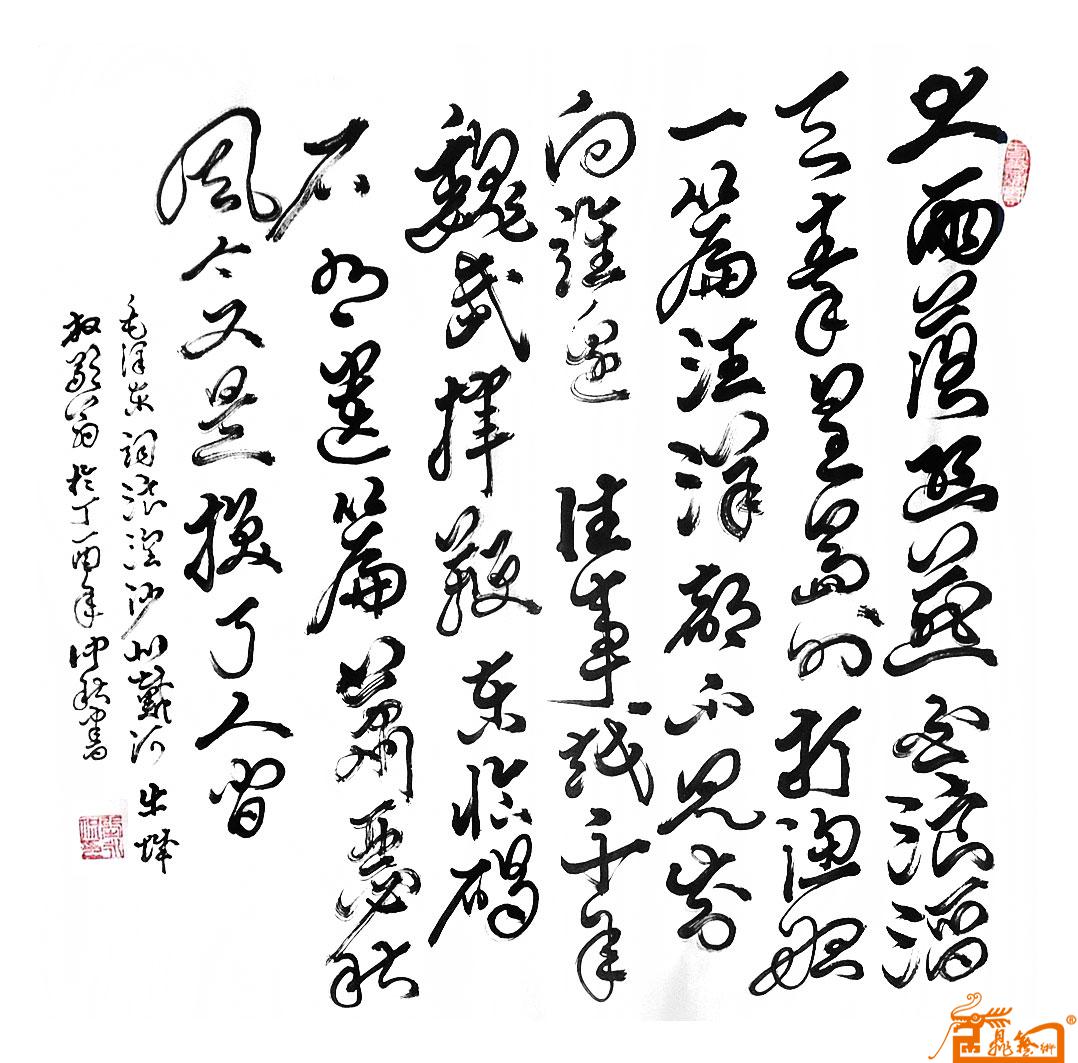 大雨落幽燕白浪滔
天秦皇島外打漁船
一篇汪洋都不见
向谁边 往事越千年
魏武挥鞭东临碣
石有遗篇萧瑟秋
风今又是换了人间
毛泽东词浪淘沙北戴河
翁於丁酉年仲秋书
藝術